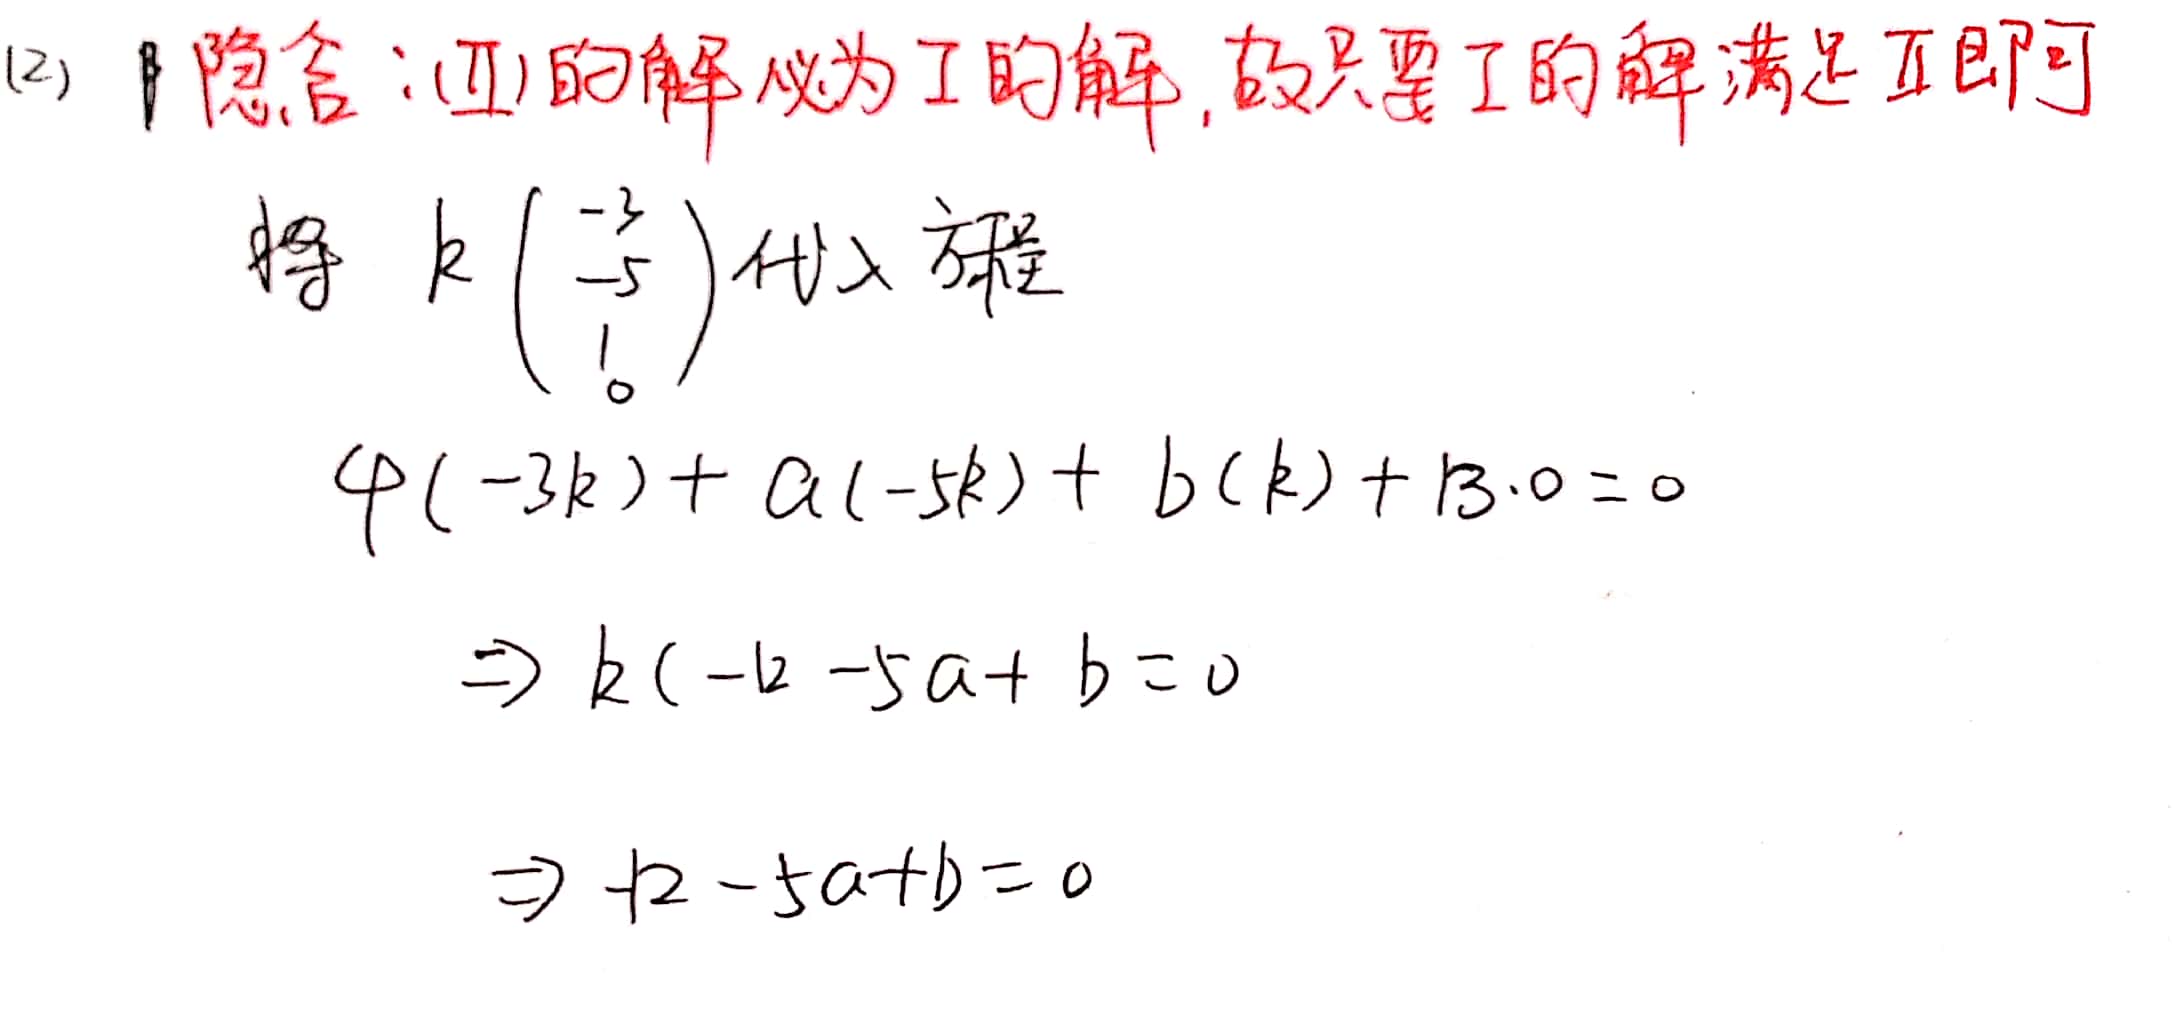 (2) 隐含:(Ⅱ)的解必为Ⅰ的解,故只要Ⅰ的解满足Ⅱ即可
将 k(-3 -5 1 0)代入方程
4(-3k)+a(-5k)+b(k)+13·0=0
⇒ k(-12-5a+b=0
⇒ -12-5a+b=0